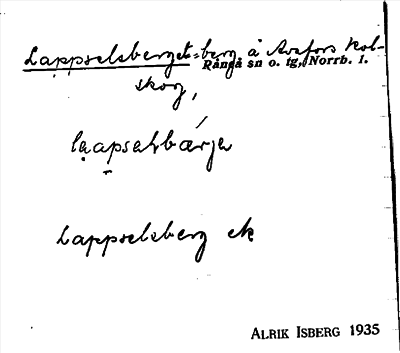 Lappselsberget = berg å Avafors kol-
Rånå sn o. tg, Norrb. l.
skog,
Lappselsberg ek
ALRIK ISBERG 1935